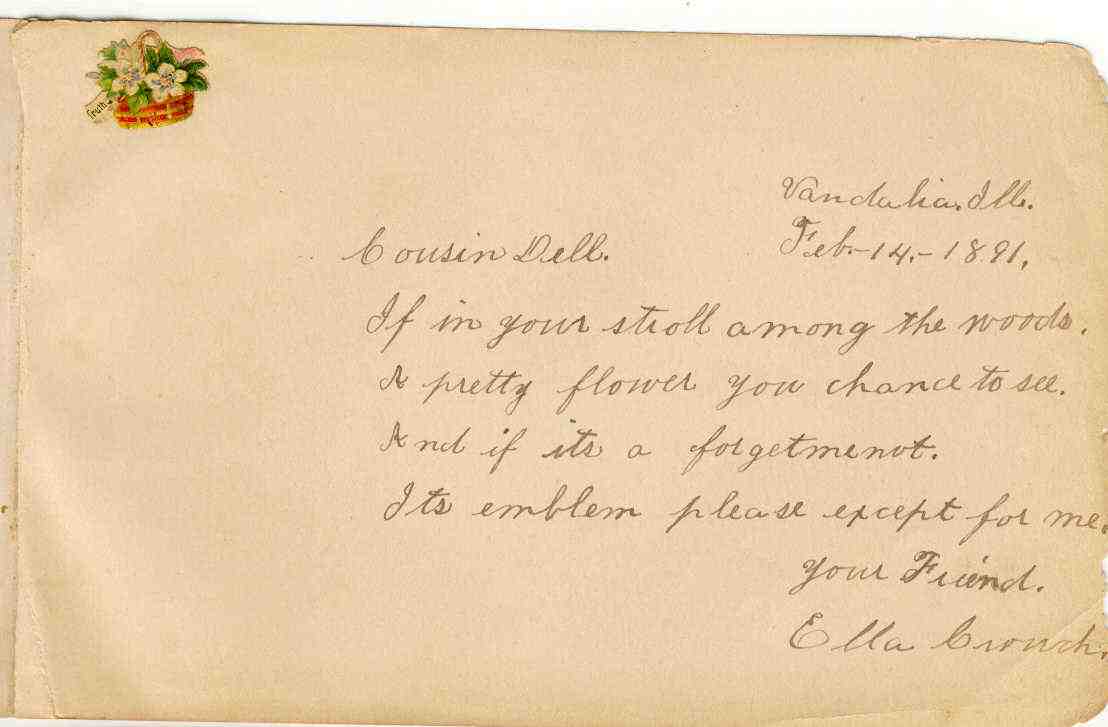 Truth
Vandalia. Ill.
Cousin Dell. Feb-14.-1891.
If in your stroll among the woods.
A pretty flower you chance to see.
And if its a forgetmenot.
Its emblem please except for me.
your Friend.
Ella Crouch.